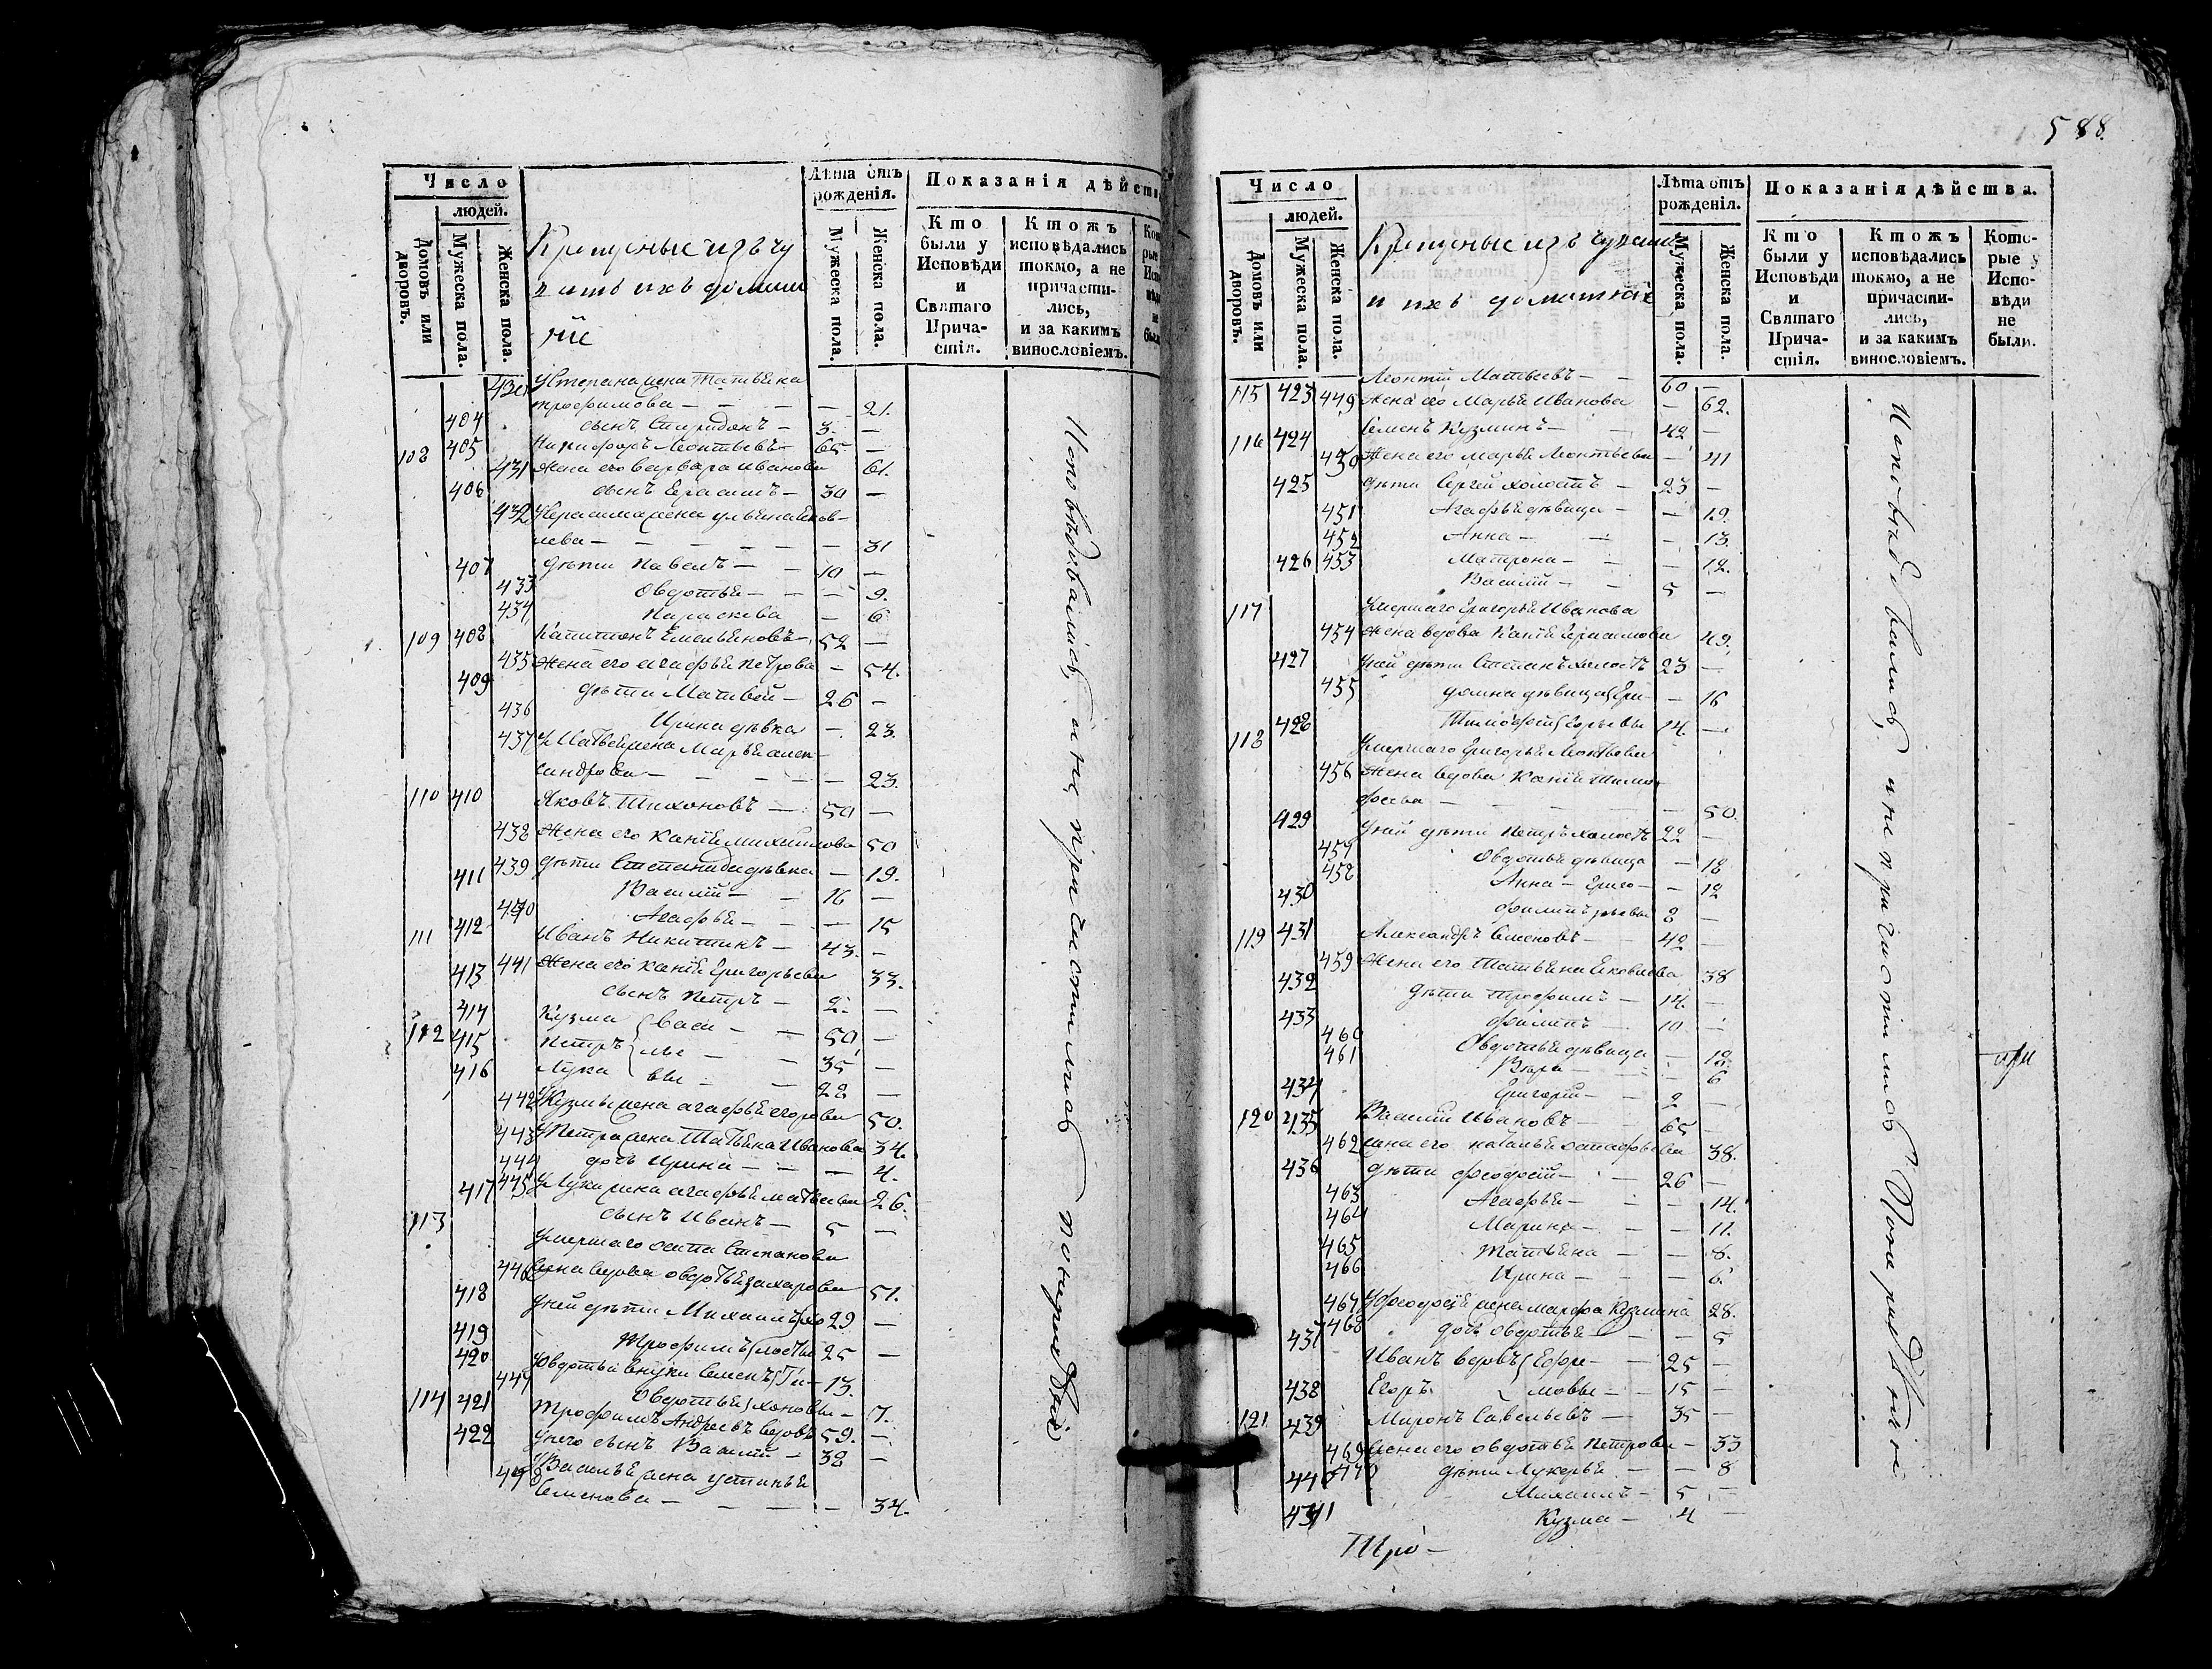 588.
Число
людей.
Домовъ или дворовъ.
Мужеска пола.
Женска пола.
Крещеные изъ чу
вашъ ихъ домаш
ніе
Лѣта отъ рожденія.
Мужеска пола.
Женска пола.
Показанія дѣйств
Кто были у Исповѣди и Святаго Прича-стія.
Ктожъ исповѣдались токмо, а не причасти-лись, и за какимъ винословіемъ.
430 У Степана жена Татьяна
трофимова — 21.
404 сынъ Спиридонъ — 3. —
108 405 Никифоръ Леонтьевъ — 65 —
431 Жена его Варвара иванова 61.
406 сынъ Герасимъ — 30 —
432 У Герасима жена ульяна Яков-
лева — 31
407 дѣти Павелъ — 10 —
433 Овдотья — 9.
434 Параскева — 6
109 408 Капитонъ Емельяновъ — 52 —
435 Жена его агафья петрова — 54.
409 дѣти Матвей — 26 —
436 Ирина дѣвка — 23.
437 У Матвея жена Марья алек-
сандрова — 23.
110 410 Яковъ Тихоновъ — 50 —
438 Жена его Ксенія михайлова 50
439 дѣти Степанида дѣвка — 19.
411 Василій — 16 —
440 Агафья — 15
111 412 Иванъ Никитинъ — 43. —
441 Жена его Ксенія Григорьева 33.
413 сынъ Петръ — 2. —
112 414 Кузма } васи — 50 —
415 Петръ } лье — 35 —
416 Лука } вы — 28 —
442 У Кузмы жена агафья егорова 50.
443 У Петра жена Татьяна Иванова 34.
444 дочь Ирина — 4.
445 У Луки жена агафья матвеева 26.
417 сынъ Иванъ — 5 —
113 Умершаго осипа Степанова
446 жена вдова овдотья захарова 51.
418 У ней дѣти Михаилъ } хо 29 —
419 Трофимъ } лосты 25 —
420 У овдотьи внуки Семенъ } Ти — 13.
447 Овдотья } хоновы — 7.
114 421 Трофимъ Андреевъ вдовъ 59. —
422 У него сынъ Василій — 38 —
448 У Василья жена устинья
Семенова — 34.
Исповѣдывались, а не причастились по нерадѣнію
Число
людей.
Домовъ или дворовъ.
Мужеска пола.
Женска пола.
Крещеные изъ чувашъ
и ихъ домашніе
Лѣта отъ рожденія.
Мужеска пола.
Женска пола.
Показанія дѣйства.
Кто были у Исповѣди и Святаго Прича-стія.
Ктожъ исповѣдались токмо, а не причасти-лись, и за какимъ винословіемъ.
Кото-рые у Испо-вѣди не были.
115 423 Леонтій Матвеевъ — 60 —
449 Жена его Марья Иванова — 62.
116 424 Семенъ Кузминъ — 42 —
450 Жена его марья Леонтьева — 41
425 дѣти Сергей холостъ — 23 —
451 Агафья дѣвица — 19.
452 Анна — 13.
453 Матрона — 12.
426 Василій — 5 —
117 Умершаго Григорья Иванова
454 Жена вдова Ксенія Герасимова 49.
427 У ней дѣти Степанъ холостъ 23 —
455 домна дѣвица } Гри — 16
428 Тимофей } горьевы 14. —
118 Умершаго Григорья Леонтьева
456 Жена вдова Ксенія Тимо
феева — 50.
429 У ней дѣти Петръ холостъ 22 —
457 Овдотья дѣвица — 18
458 Анна — Григо — 12
430 Филипъ рьевы 8 —
119 431 Александръ Семеновъ — 42 —
459 Жена его Татьяна Яковлева 38
432 дѣти Трофимъ — 14. —
433 Филипъ — 10 —
460 Овдотья дѣвица — 12.
461 Вѣра — 6
434 Григорій — 2 —
120 435 Василій Ивановъ — 65 —
462 жена его наталья остафьева 38.
436 дѣти Феодосій — 26 —
463 Агафья — 14.
464 Марина — 11.
465 Татьяна — 8.
466 Ирина — 6
467 У Феодосія жена марфа Кузмина 28.
468 дочь Овдотья — 5
437 Иванъ вдовъ } Ефре — 25 —
438 Егоръ } мовы — 15 —
121 439 Миронъ Савельевъ — 35 —
469 Жена его овдотья Петрова — 33
470 дѣти Лукерья — 8
440 Михаилъ — 5 —
441 Кузма — 4 —
Исповѣдывались, а не причастились по нерадѣнію
при
Тро —